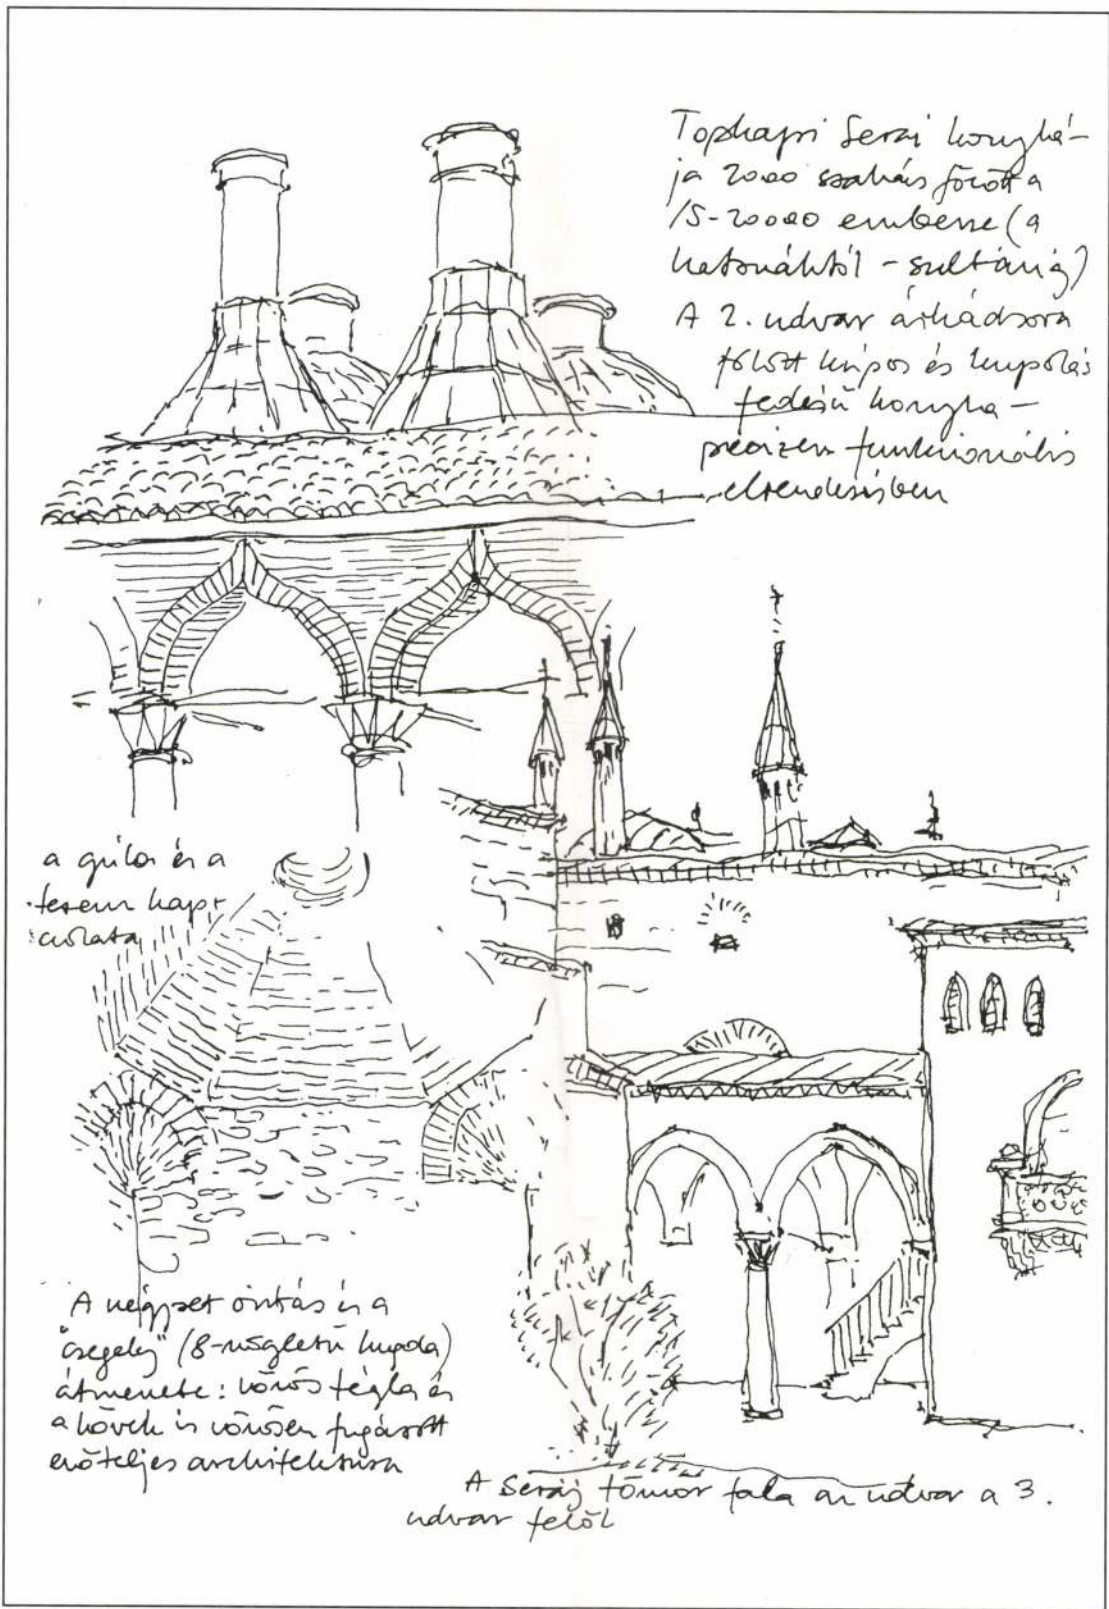 Topkapi Seraj konyhá-
ja 2000 szakács főzött a
15-20000 emberre (a
katonáktól - szultánig)
A 2. udvar árkádsora
fölött kúpos és kupolás
fedésű konyha -
precízen funkcionális
elrendezésben
a gúla és a
terem kap-
csolata
A négyzet és a
"csegely" (8-szögletű kupola)
átmenete: vörös tégla és
a kövek is vörösen fugázott
erőteljes architektúra
A Seráj tömör fala az udvar a 3.
udvar felől